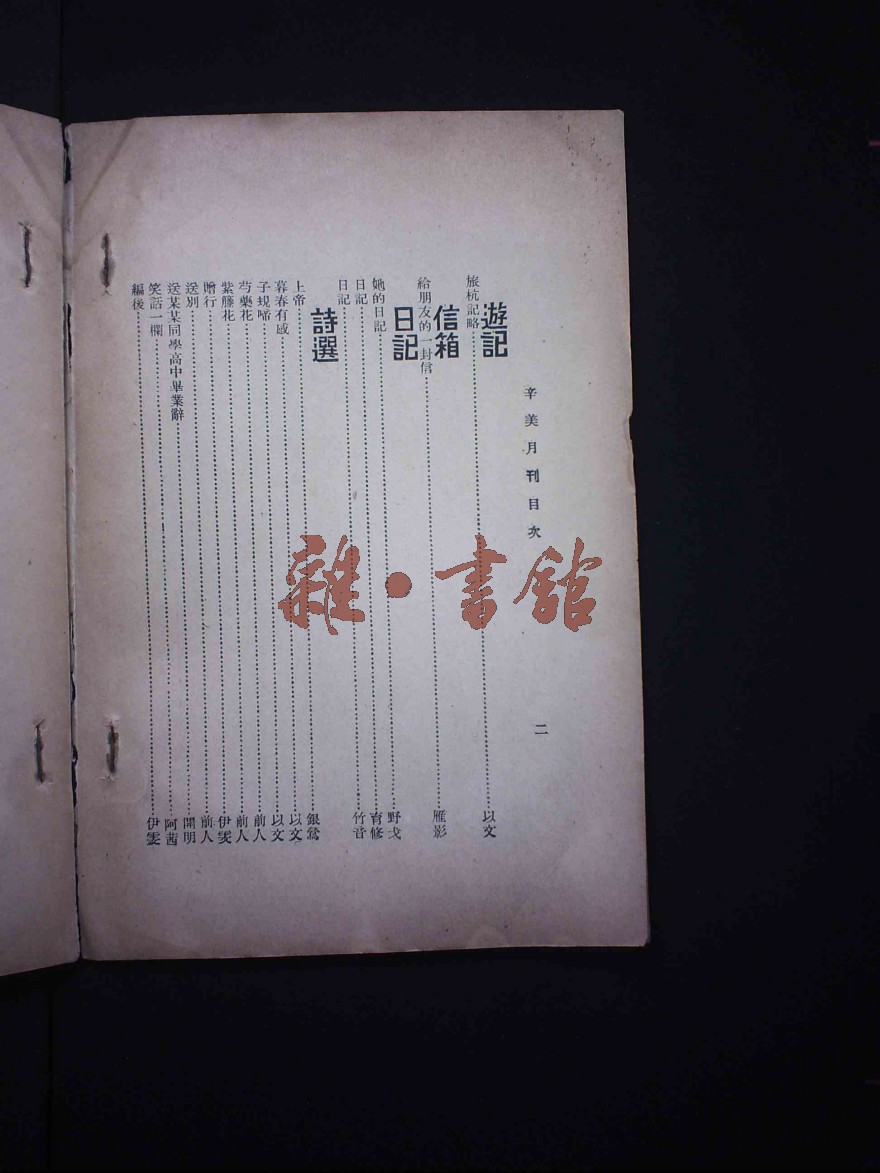 辛美月刊目次 二
遊記
旅杭記略 以文
信箱
給朋友的一封信 雁影
日記
她的日記 野戈
日記 育修
日記 竹音
詩選
上帝 銀鴛
暮春有感 以文
子規啼 以文
芍藥花 前人
紫藤花 前人
贈行 伊雯
送別 前人
送某某同學高中畢業辭 開明
笑話一欄 阿茜
編後 伊雯
雜·書館